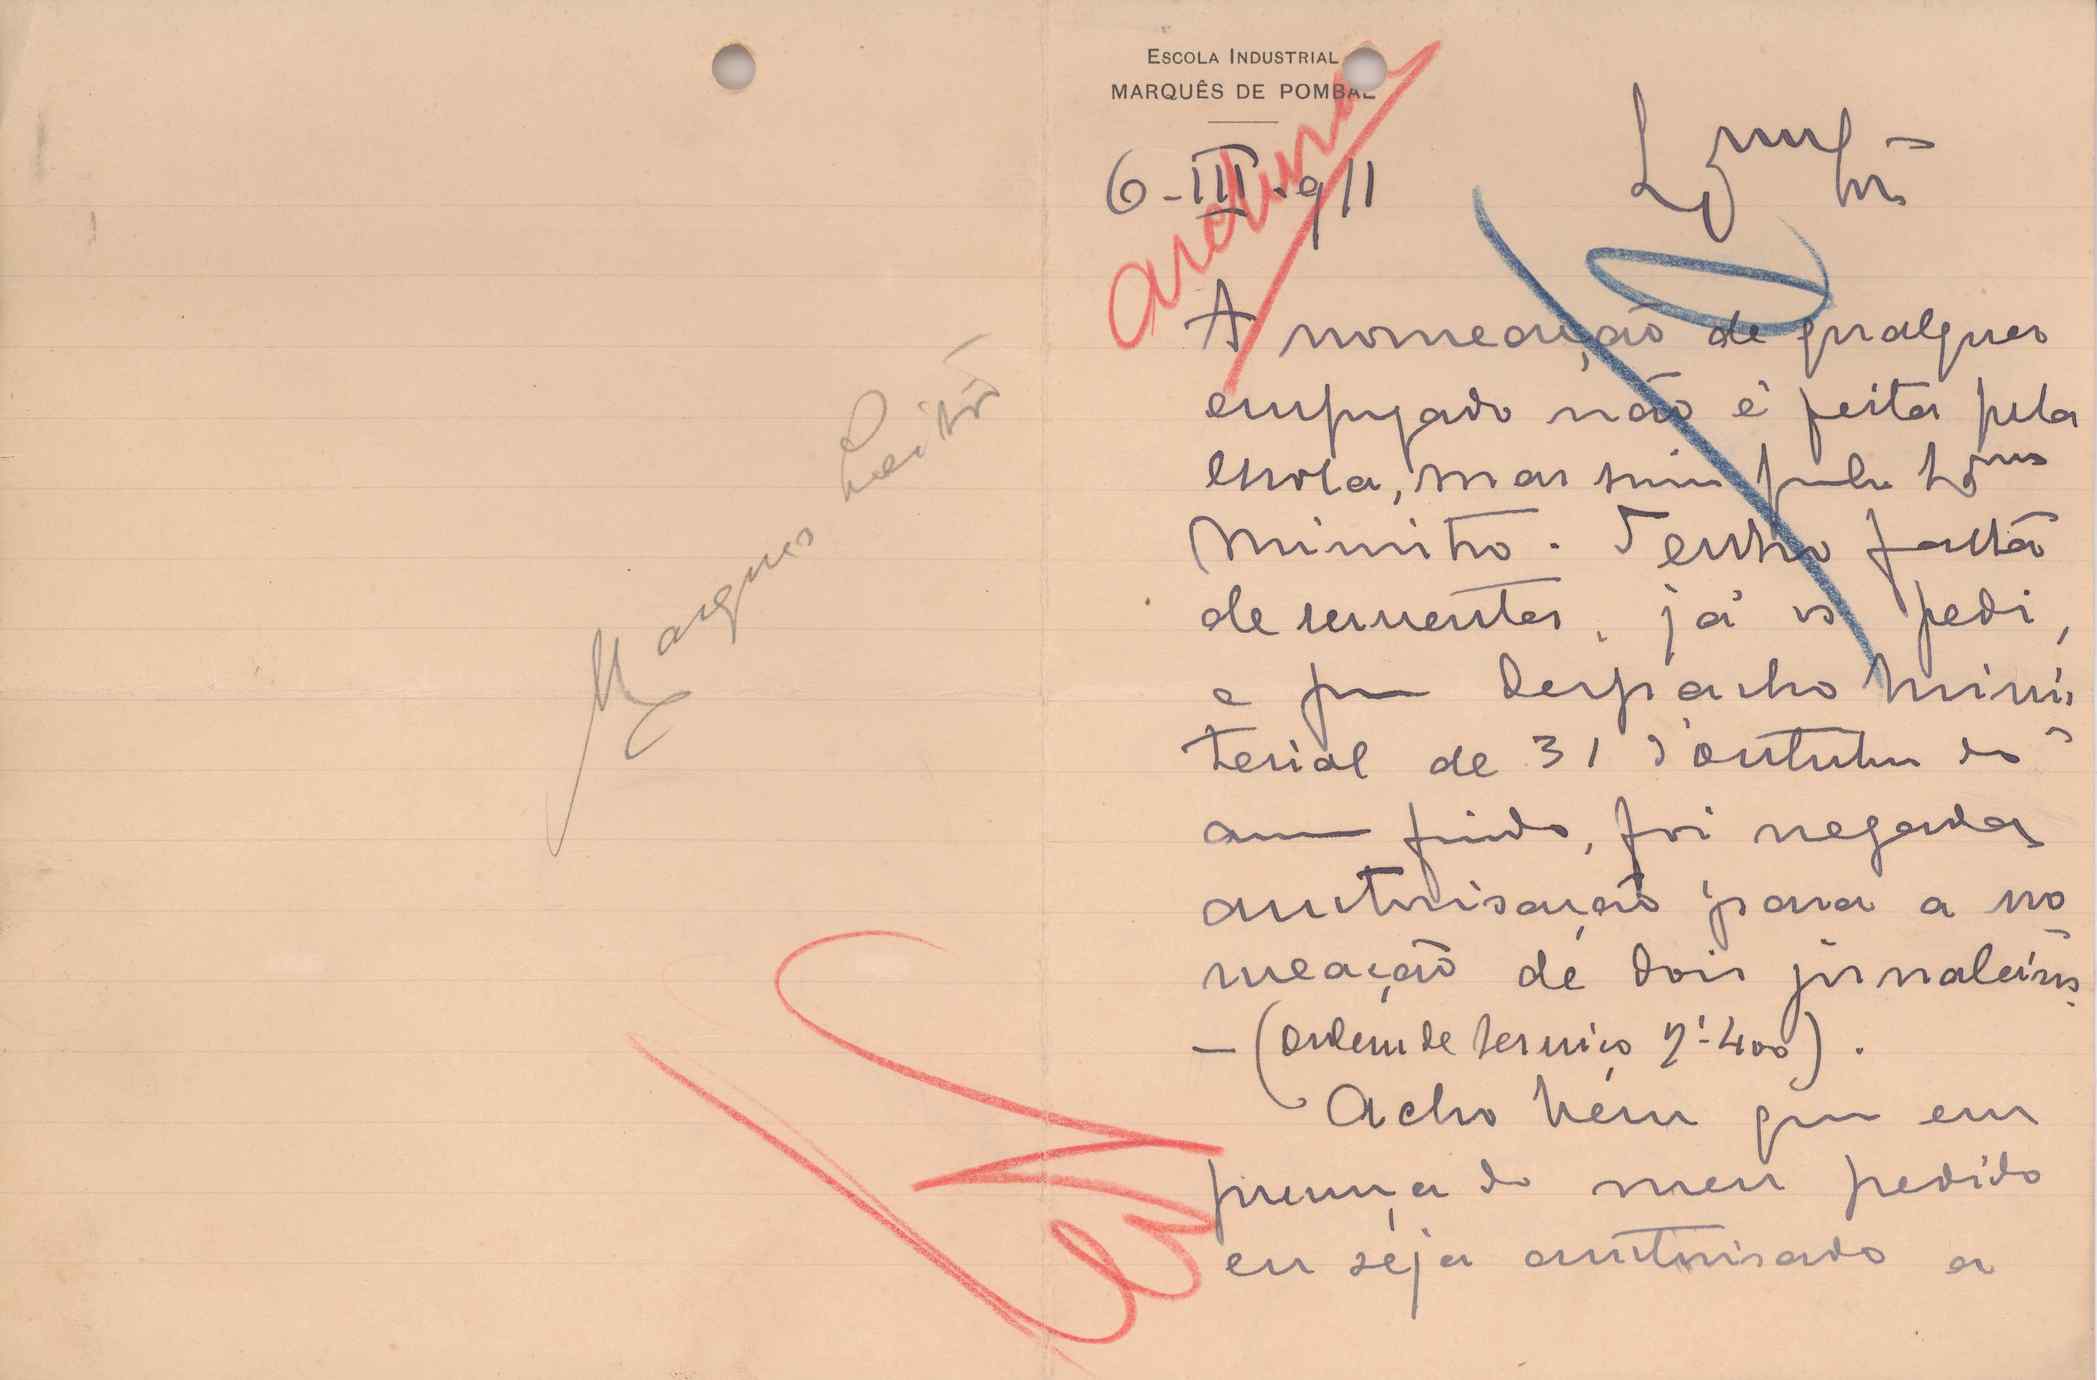 Marques Leitão
ESCOLA INDUSTRIAL
MARQUÊS DE POMBAL
6-III-911
A nomeação de qualquer
empregado não é feita pela
escola, mas sim pelo
Ministro. Tenho falta
de serventes, já os pedi,
e por despacho minis
terial de 31 d'outubro do
anno findo, foi negada
autorisação para a no
meação de dois jornaleiros
- (Ordem de serviço nº 400).
Acho bem que em
presença do meu pedido
eu seja autorisado a